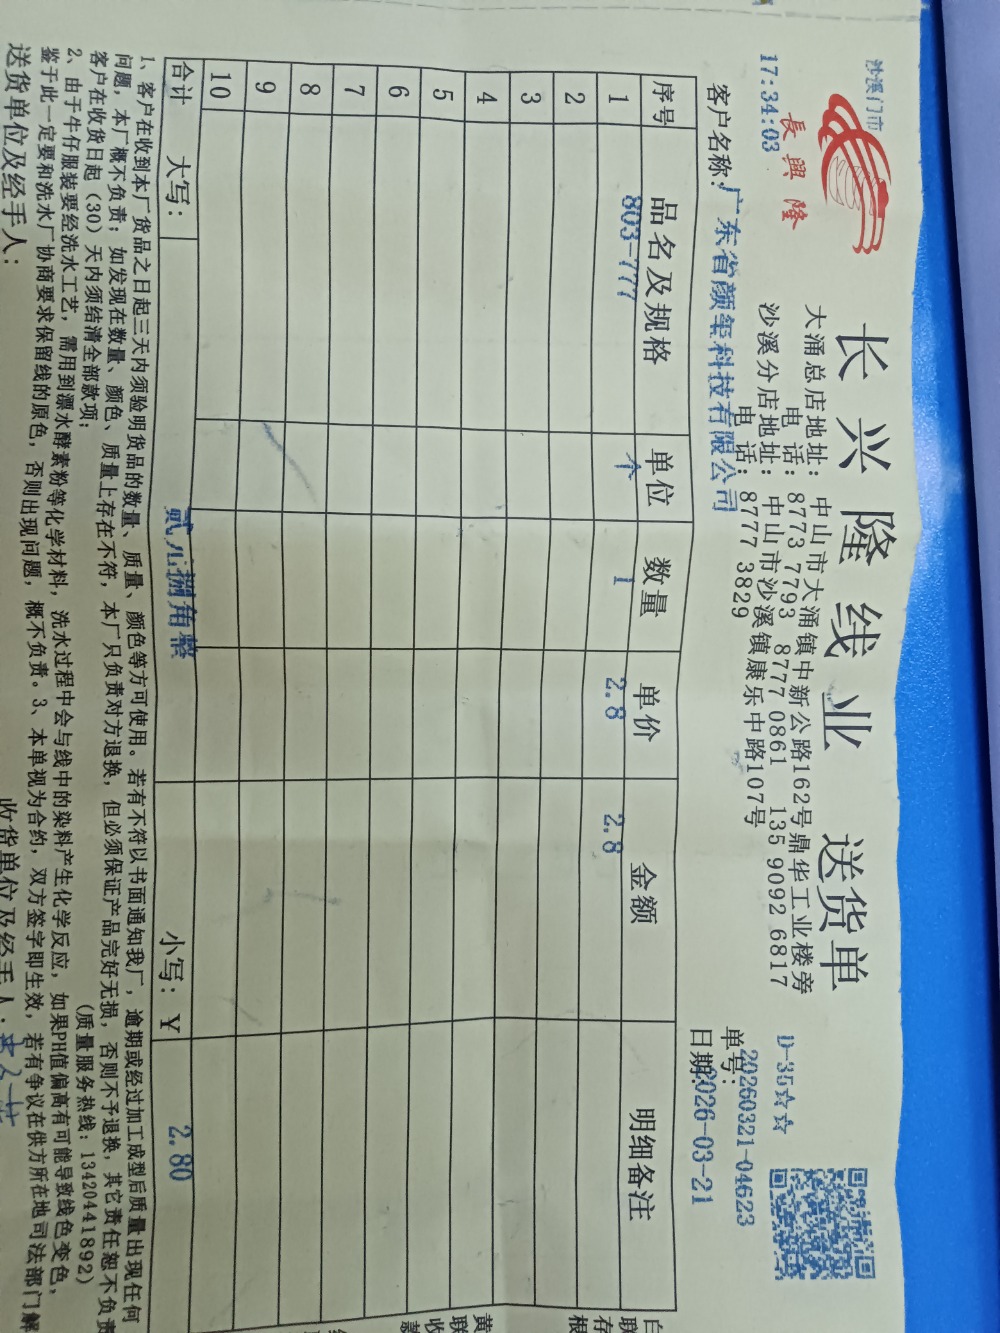 沙溪门市
長興隆
17:34:03
长兴隆线业 送货单
大涌总店地址：中山市大涌镇中新公路162号鼎华工业楼旁
电话：8773 7793 8777 0861 135 9092 6817
沙溪分店地址：中山市沙溪镇康乐中路107号
电话：8777 3829
D-35☆☆
单号：20260321-04623
日期：2026-03-21
客户名称：广东省颜玺科技有限公司
序号 品名及规格 单位 数量 单价 金额 明细备注
1 803-777 个 1 2.8 2.8
2
3
4
5
6
7
8
9
10
合计 大写： 贰元捌角整 小写：¥ 2.80
1、客户在收到本厂货品之日起三天内须验明货品的数量、质量、颜色等方可使用。若有不符以书面通知我厂，逾期或经过加工成型后质量出现任何
问题，本厂概不负责；如发现在数量、颜色、质量上存在不符，本厂只负责对方退换，但必须保证产品完好无损，否则不予退换，其它责任恕不负责
客户在收货日起（30）天内须结清全部款项； （质量服务热线：13420441892）
2、由于牛仔服装要经洗水工艺，需用到漂水酵素粉等化学材料，洗水过程中会与线中的染料产生化学反应，如果PH值偏高有可能导致线色变色，
鉴于此一定要和洗水厂协商要求保留线的原色，否则出现问题，概不负责。3、本单视为合约，双方签字即生效，若有争议在供方所在地司法部门解
送货单位及经手人： 收货单位及经手人：
白联存根
黄联收款